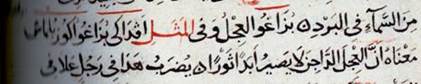 من السَّمَآء في البرد ن بزاغو العجل وفي المثل افدا كى بُزاغو الور باماش
معناه انَّ العجل الداجن لا يصير ابدا ثورًا ن يضرب هذا فى رجل علا فى